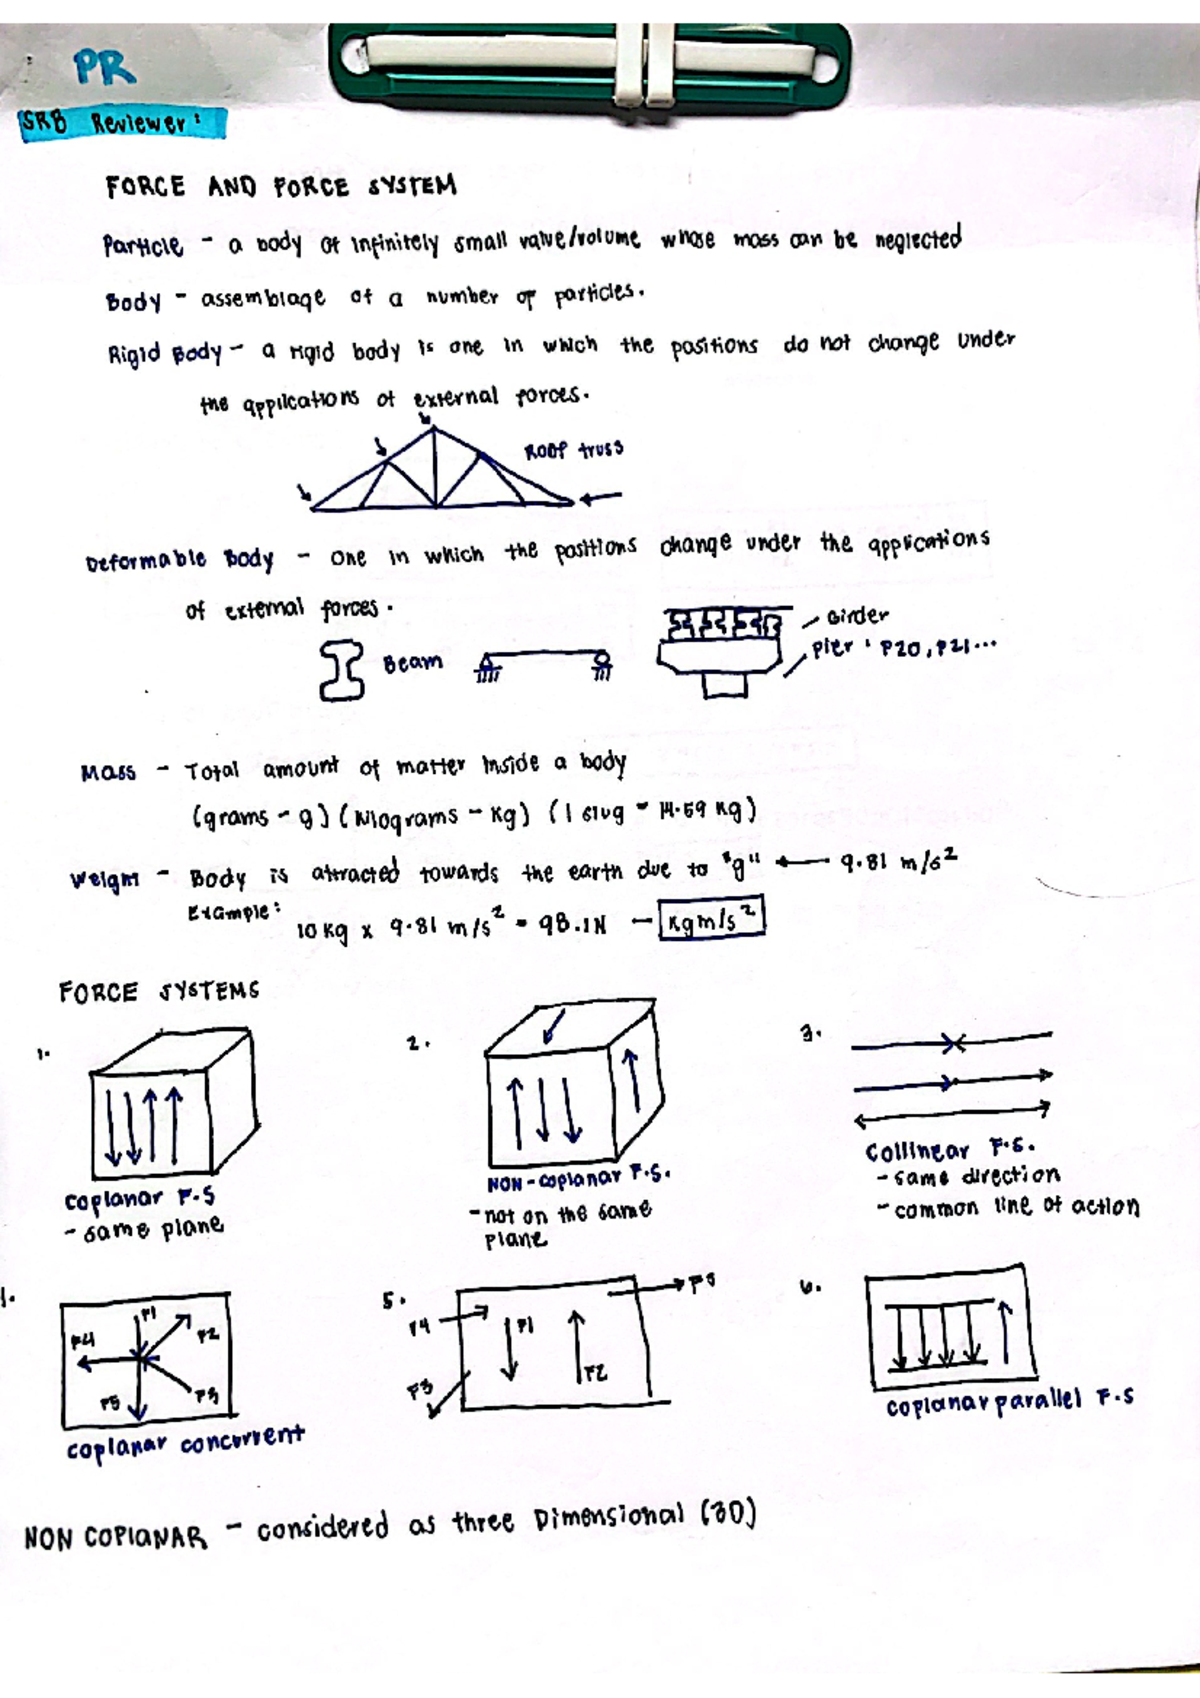 PR
SRB Reviewer:
FORCE AND FORCE SYSTEM
Particle - a body of infinitely small value/volume whose mass can be neglected
Body - assemblage of a number of particles.
Rigid Body - a rigid body is one in which the positions do not change under
the applications of external forces.
Roof truss
Deformable Body - one in which the positions change under the applications
of external forces.
Beam
Girder
Pier : P20, P21...
Mass - Total amount of matter inside a body
(grams - g) (kilograms - kg) (1 slug = 14.59 kg)
Weight - Body is attracted towards the earth due to "g" ← 9.81 m/s²
Example:
10 kg x 9.81 m/s² = 98.1N - kgm/s²
FORCE SYSTEMS
1.
2.
3.
Coplanar F.S
- same plane
NON-coplanar F.S.
- not on the same
plane
Collinear F.S.
- same direction
- common line of action
F1
F2
F3
F4
F5
coplanar concurrent
5.
F4
F1
F2
F3
F5
6.
coplanar parallel F.S
NON COPLANAR - considered as three Dimensional (3D)